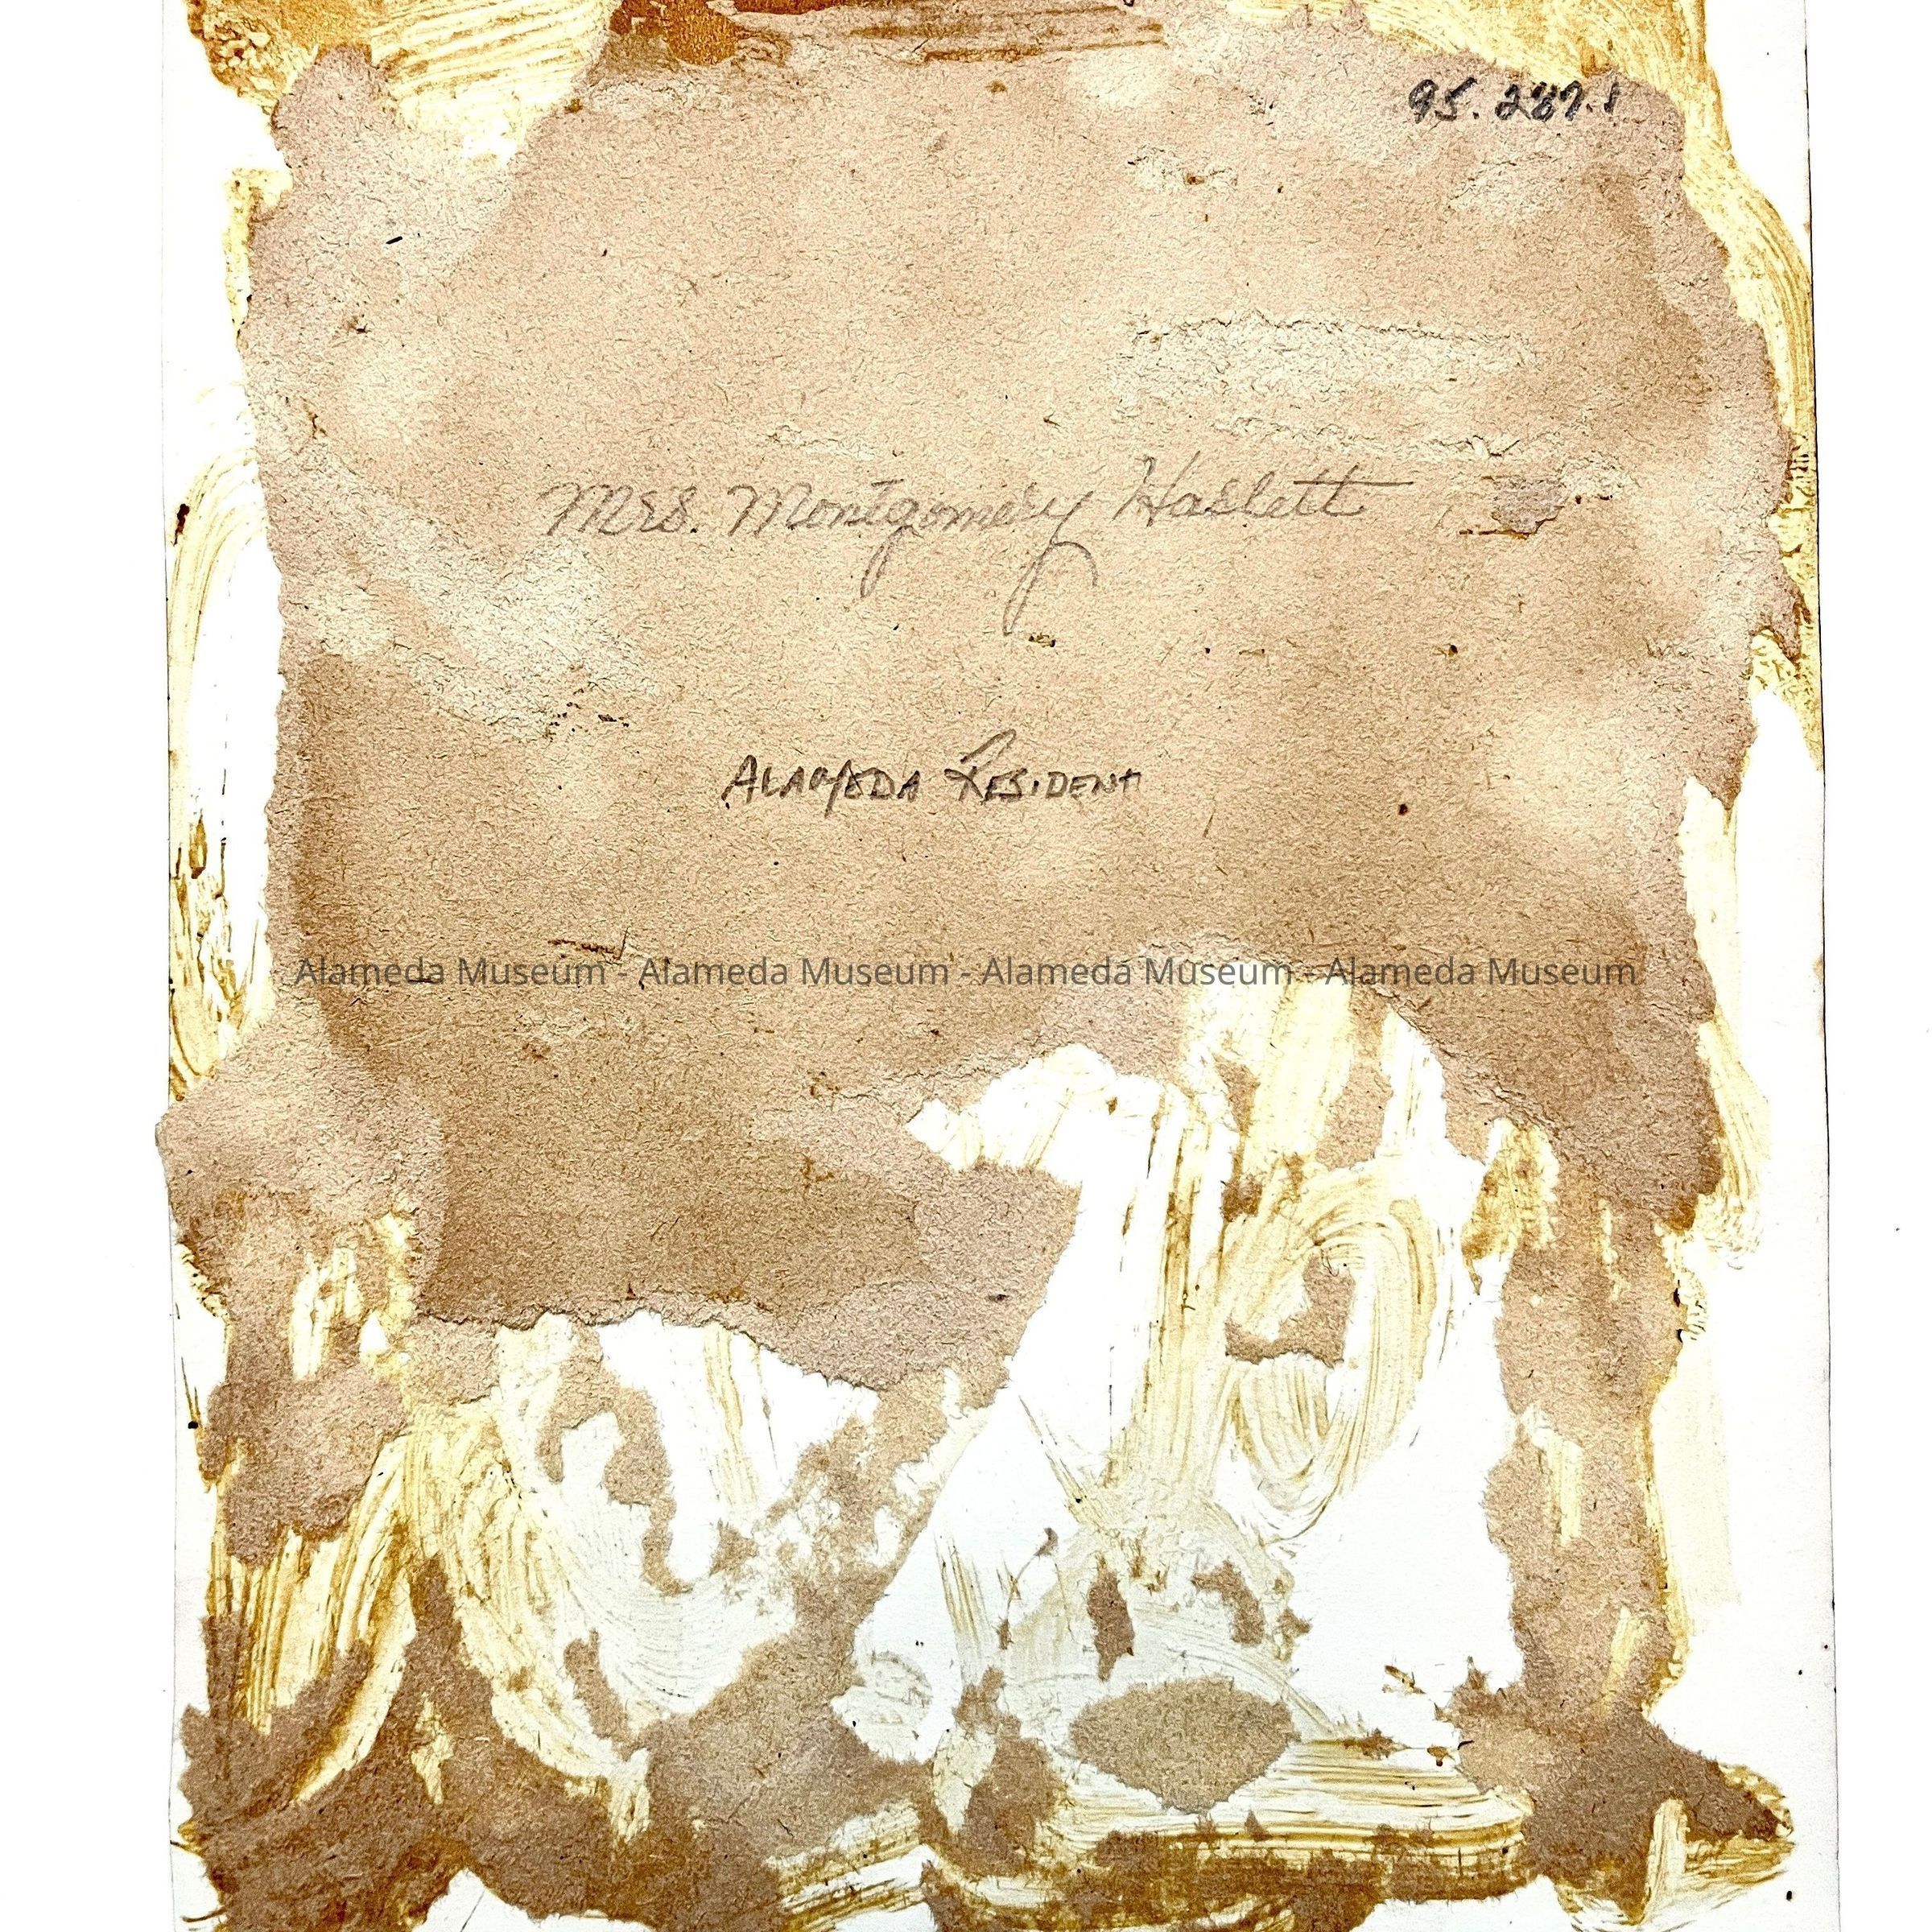 95.287.1
Mrs. Montgomery Haslett
ALAMEDA RESIDENT
Alameda Museum - Alameda Museum - Alameda Museum - Alameda Museum